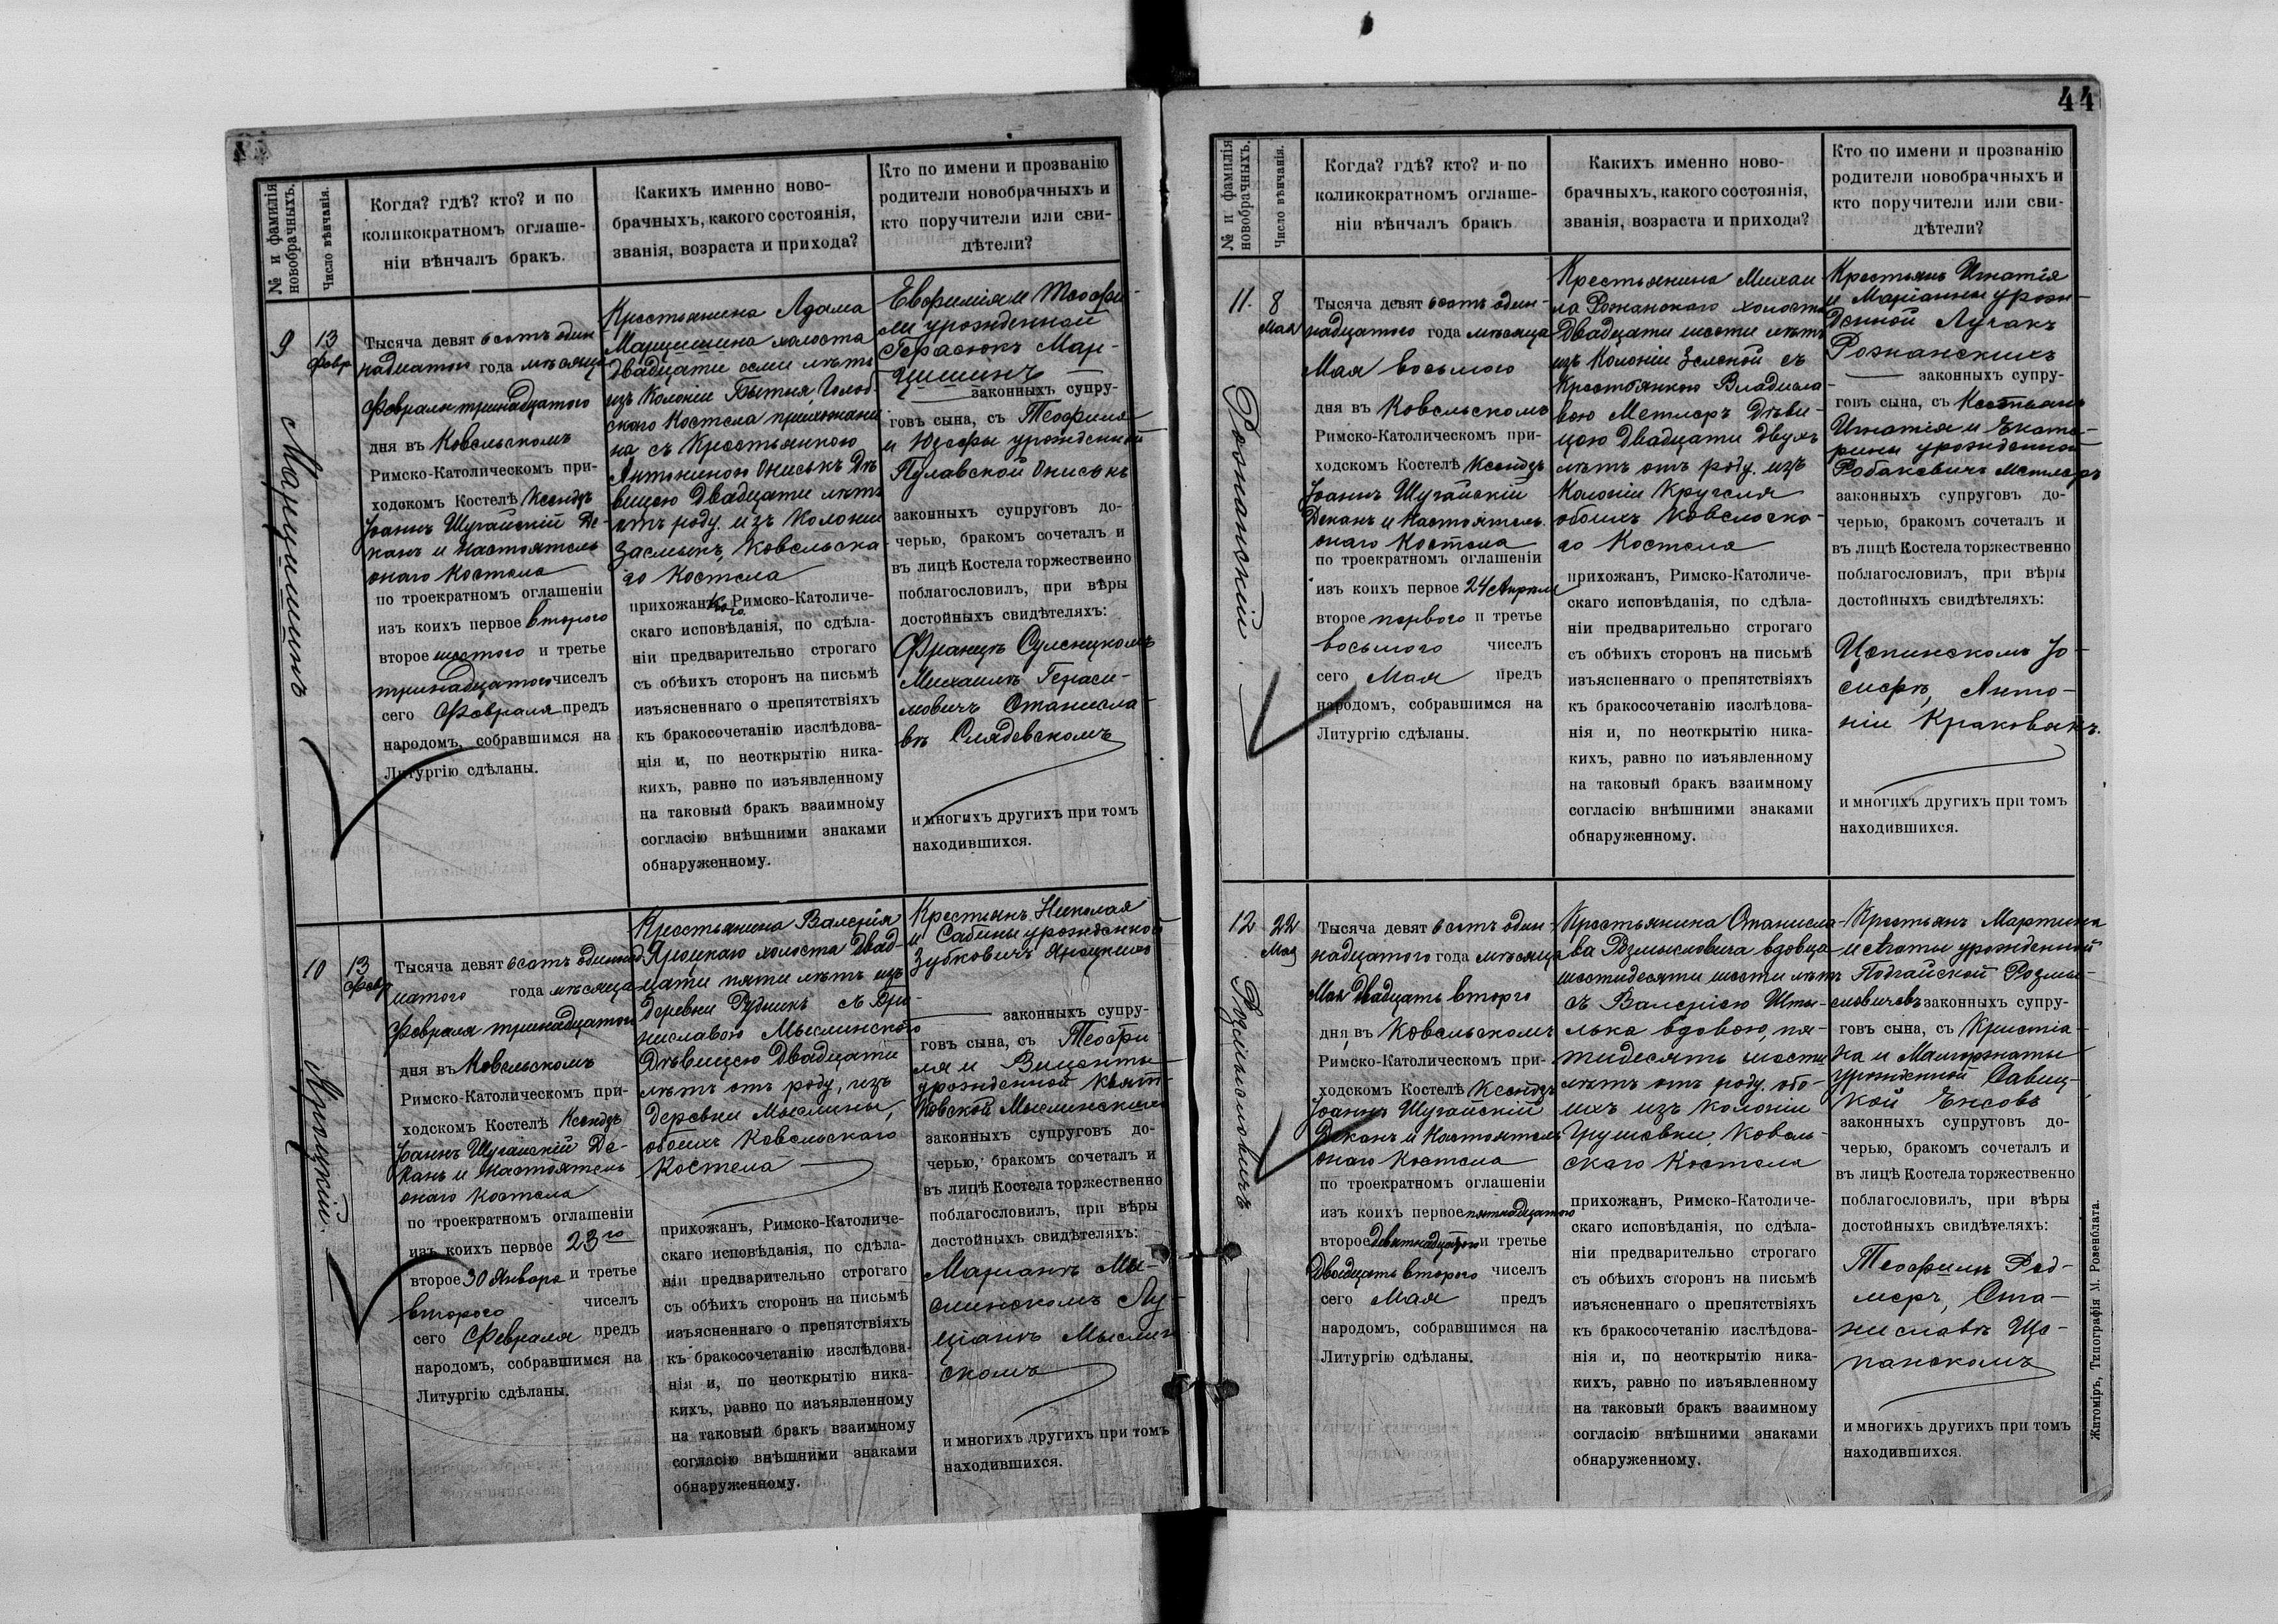 № и фамилія новобрачныхъ.
Число вѣнчанія.
Когда? гдѣ? кто? и по
коликократномъ оглаше-
ніи вѣнчалъ бракъ.
Какихъ именно ново-
брачныхъ, какого состоянія,
званія, возраста и прихода?
Кто по имени и прозванію
родители новобрачныхъ и
кто поручители или сви-
дѣтели?
9
Марцишинъ
13
Февр
Тысяча девятьсотъ один
надцатого года мѣсяца
Февраля тринадцатого
дня въ Ковельскомъ
Римско-Католическомъ при-
ходскомъ Костелѣ Ксендзъ
Іоаннъ Шугайскій Де-
канъ и Настоятель
онаго Костела
по троекратномъ оглашеніи
изъ коихъ первое второго
второе шестого и третье
тринадцатого чиселъ
сего Февраля предъ
народомъ, собравшимся на
Литургію сдѣланы.
Крестьянина Адама
Марцишина холоста
двадцати семи лѣтъ
изъ Колоніи
скаго Костела прихожани
на съ Крестьянкою
Антониною Онисъкъ Дѣ
вицею Двадцати лѣтъ
отъ роду изъ Колоніи
Засмыкъ, Ковельска
го Костела
прихожанкою Римско-Католиче-
скаго исповѣданія, по сдѣла-
ніи предварительно строгаго
съ обѣихъ сторонъ на письмѣ
изъясненнаго о препятствіяхъ
къ бракосочетанію изслѣдова-
нія и, по неоткрытію ника-
кихъ, равно по изъявленному
на таковый бракъ взаимному
согласію внѣшними знаками
обнаруженному.
Евфимія и Теофи-
ли урожденной
Герасюкъ Мар-
цишинъ
законныхъ супру-
говъ сына, съ Теофиля
и Юзефы урожденной
Пулавской Онисъкъ
законныхъ супруговъ до-
черью, бракомъ сочеталъ и
въ лицѣ Костела торжественно
поблагословилъ, при вѣры
достойныхъ свидѣтеляхъ:
Францѣ Суленцкомъ
Михаилѣ Гераси-
мовичъ Станисла-
вѣ Слядевскомъ
и многихъ другихъ при томъ
находившихся.
10
Яроцкій.
13
Февр
Тысяча девятьсотъ одиннад
цатого года мѣсяца
Февраля тринадцатого
дня въ Ковельскомъ
Римско-Католическомъ при-
ходскомъ Костелѣ Ксендзъ
Іоаннъ Шугайскій Де-
канъ и Настоятель
онаго Костела
по троекратномъ оглашеніи
изъ коихъ первое 23го
второе 30 Января и третье
второго чиселъ
сего Февраля предъ
народомъ, собравшимся на
Литургію сдѣланы.
Крестьянина Валерія
Яроцкаго холоста Двад-
цати пяти лѣтъ изъ
деревни Рудникъ съ Бро-
ниславою Мыслинской
Дѣвицею Двадцати
лѣтъ отъ роду, изъ
деревни Мыслины,
обоихъ Ковельскаго
Костела
прихожанъ, Римско-Католиче-
скаго исповѣданія, по сдѣла-
ніи предварительно строгаго
съ обѣихъ сторонъ на письмѣ
изъясненнаго о препятствіяхъ
къ бракосочетанію изслѣдова-
нія и, по неоткрытію ника-
кихъ, равно по изъявленному
на таковый бракъ взаимному
согласію внѣшними знаками
обнаруженному.
Крестьянъ Николая
и Сабины урожденной
Зубковичъ Яроцкихъ
законныхъ супру-
говъ сына, съ Теофи
ля и Виценты
урожденной Квят-
ковской Мыслинскихъ
законныхъ супруговъ до-
черью, бракомъ сочеталъ и
въ лицѣ Костела торжественно
поблагословилъ, при вѣры
достойныхъ свидѣтеляхъ:
Маріанѣ Мы-
слинскомъ Лу-
ціанѣ Мыслин
скомъ
и многихъ другихъ при томъ
находившихся.
44
№ и фамилія новобрачныхъ.
Число вѣнчанія.
Когда? гдѣ? кто? и по
коликократномъ оглаше-
ніи вѣнчалъ бракъ
Какихъ именно ново-
брачныхъ, какого состоянія,
званія, возраста и прихода?
Кто по имени и прозванію
родители новобрачныхъ и
кто поручители или сви-
дѣтели?
11.
Рожанскій.
8
Мая
Тысяча девятьсотъ один-
надцатого года мѣсяца
Мая восьмого
дня въ Ковельскомъ
Римско-Католическомъ при-
ходскомъ Костелѣ Ксендзъ
Іоаннъ Шугайскій
Деканъ и Настоятель
онаго Костела
по троекратномъ оглашеніи
изъ коихъ первое 24 Апрѣля
второе первого и третье
восьмого чиселъ
сего Мая предъ
народомъ, собравшимся на
Литургію сдѣланы.
Крестьянина Михаи
ла Рожанского холоста
Двадцати шести лѣтъ
изъ Колоніи Зеленой съ
Крестьянкою Владисла-
вою Метлеръ Дѣви-
цою Двадцати двухъ
лѣтъ отъ роду изъ
Колоніи Кругеля
обоихъ Ковельска-
го Костела
прихожанъ, Римско-Католиче-
скаго исповѣданія, по сдѣла-
ніи предварительно строгаго
съ обѣихъ сторонъ на письмѣ
изъясненнаго о препятствіяхъ
къ бракосочетанію изслѣдова-
нія и, по неоткрытію ника-
кихъ, равно по изъявленному
на таковый бракъ взаимному
согласію внѣшними знаками
обнаруженному.
Крестьянъ Игнатія
и Маріанны урож-
денной Лучакъ
Рожанскихъ
законныхъ супру-
говъ сына, съ Крестьянъ
Игнатія и Екате-
рины урожденной
Робакевичъ Метлеръ
законныхъ супруговъ до-
черью, бракомъ сочеталъ и
въ лицѣ Костела торжественно
поблагословилъ, при вѣры
достойныхъ свидѣтеляхъ:
Іо-
сифѣ, Анто-
ніи Краковякъ.
и многихъ другихъ при томъ
находившихся.
12
Розмысловичъ
22
Мая
Тысяча девятьсотъ один-
надцатого года мѣсяца
Мая Двадцать второго
дня въ Ковельскомъ
Римско-Католическомъ при-
ходскомъ Костелѣ Ксендзъ
Іоаннъ Шугайскій
Деканъ и Настоятель
онаго Костела
по троекратномъ оглашеніи
изъ коихъ первое пятнадцатого
второе девятнадцатого и третье
Двадцать второго чиселъ
сего Мая предъ
народомъ, собравшимся на
Литургію сдѣланы.
Крестьянина Станисла-
ва Розмысловича вдовца
шестидесяти шести лѣтъ
съ Валеріею Шты-
лька вдовою, пя-
тидесять шести
лѣтъ отъ роду обо-
ихъ изъ Колоніи
Грушевки, Ковель-
скаго Костела
прихожанъ, Римско-Католиче-
скаго исповѣданія, по сдѣла-
ніи предварительно строгаго
съ обѣихъ сторонъ на письмѣ
изъясненнаго о препятствіяхъ
къ бракосочетанію изслѣдова-
нія и, по неоткрытію ника-
кихъ, равно по изъявленному
на таковый бракъ взаимному
согласію внѣшними знаками
обнаруженному.
Крестьянъ Мартина
и Агаты урожденной
Подгайской Розмы-
словичевъ законныхъ супру-
говъ сына, съ Кристіа-
на и Малгоржаты
урожденной Савиц-
кой Енсовъ
законныхъ супруговъ до-
черью, бракомъ сочеталъ и
въ лицѣ Костела торжественно
поблагословилъ, при вѣры
достойныхъ свидѣтеляхъ:
Теофилѣ Ред-
меръ, Ста-
ниславѣ Ще-
панскомъ
и многихъ другихъ при томъ
находившихся.
Житоміръ, Типографія М. Розенблата.